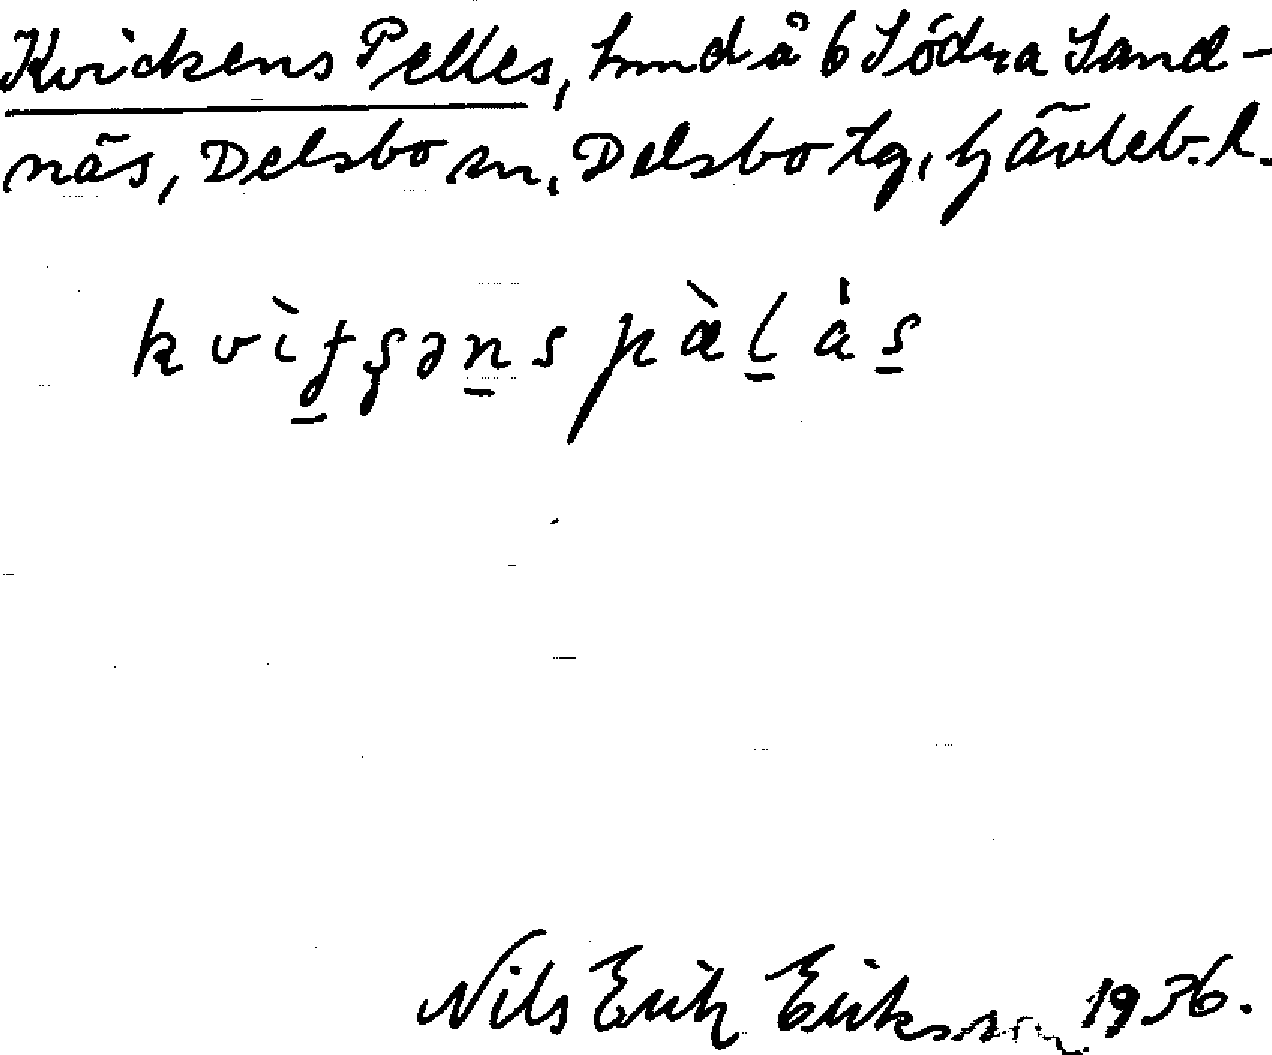 Kvickens Pelles, hmd å 6 Södra Sand-
näs, Delsbo sn, Delsbo tg, Gävleb. l.
kvìt̠ʂəns pæ̀l̠ås̠
Nils Erik Eriksson 1936.